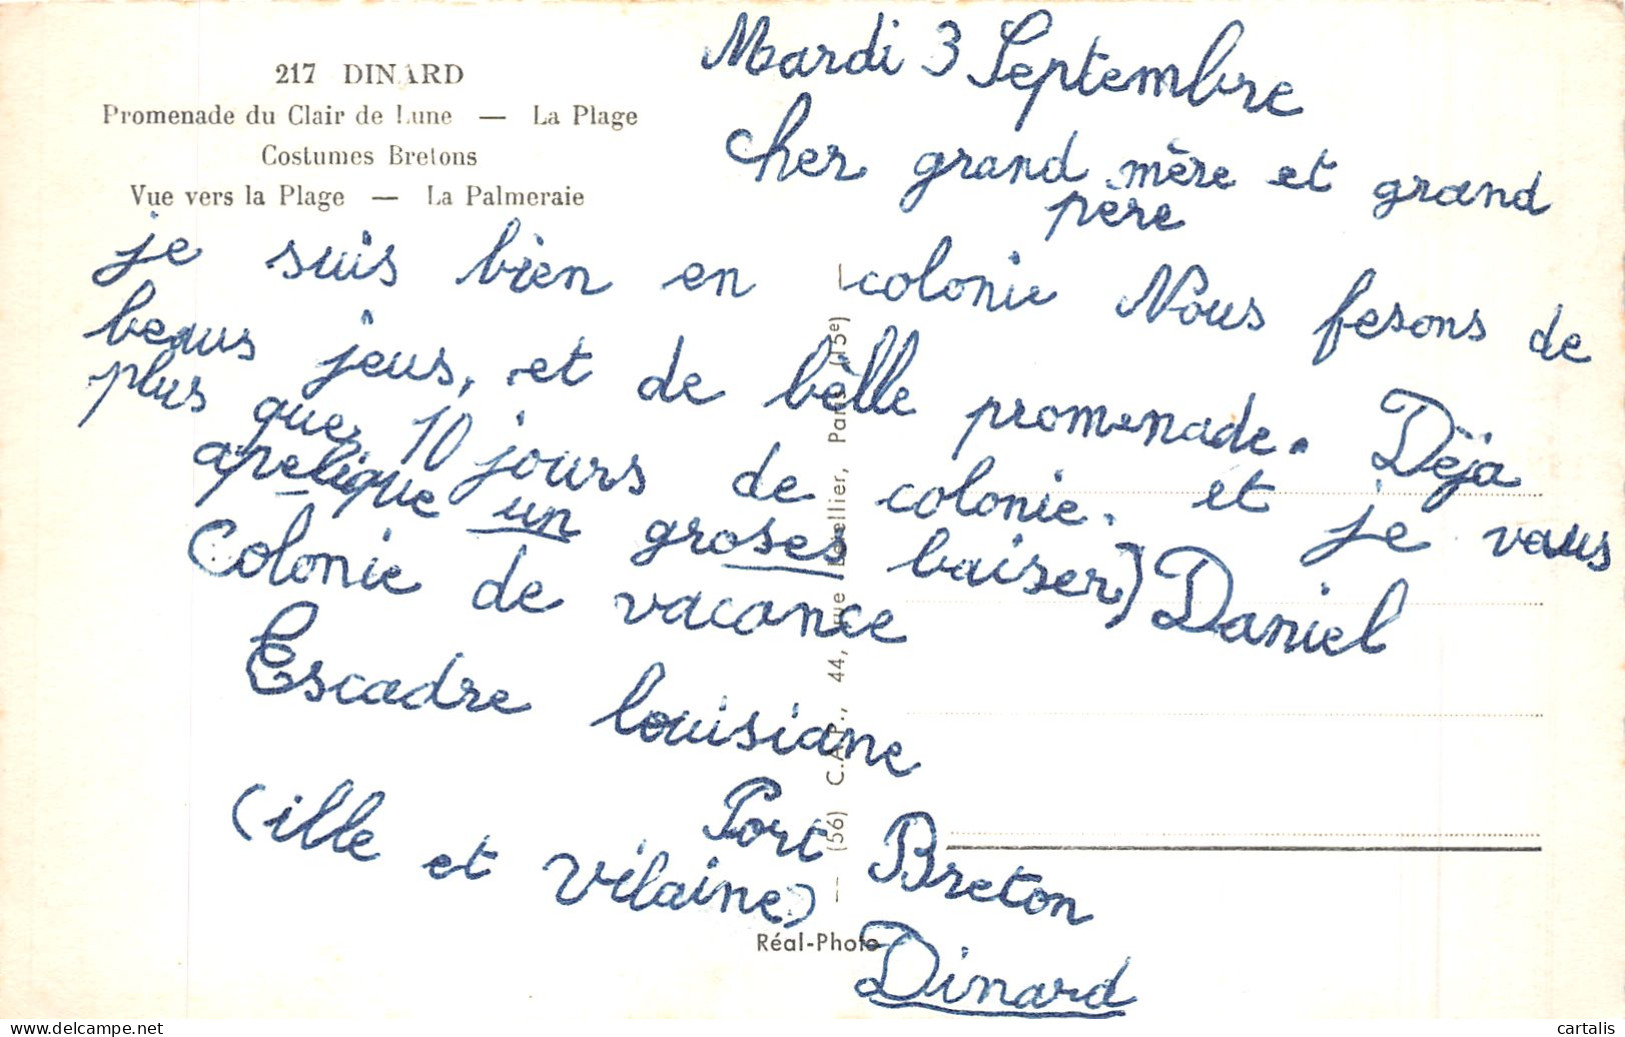 217 DINARD
Promenade du Clair de Lune — La Plage
Costumes Bretons
Vue vers la Plage — La Palmeraie
Mardi 3 Septembre
cher grand mère et grand
père
je suis bien en colonie Nous fesons de
beaus jeus, et de bèlle promenade. Dèja
plus que 10 jours de colonie. et je vous
apelique un groses baiser) Daniel
Colonie de vacance
Escadre louisiane
Port Breton
(ille et vilaine)
Dinard
— (56) C.A.P., 44, rue Letellier, Paris (15e)
Réal-Photo
www.delcampe.net
cartalis